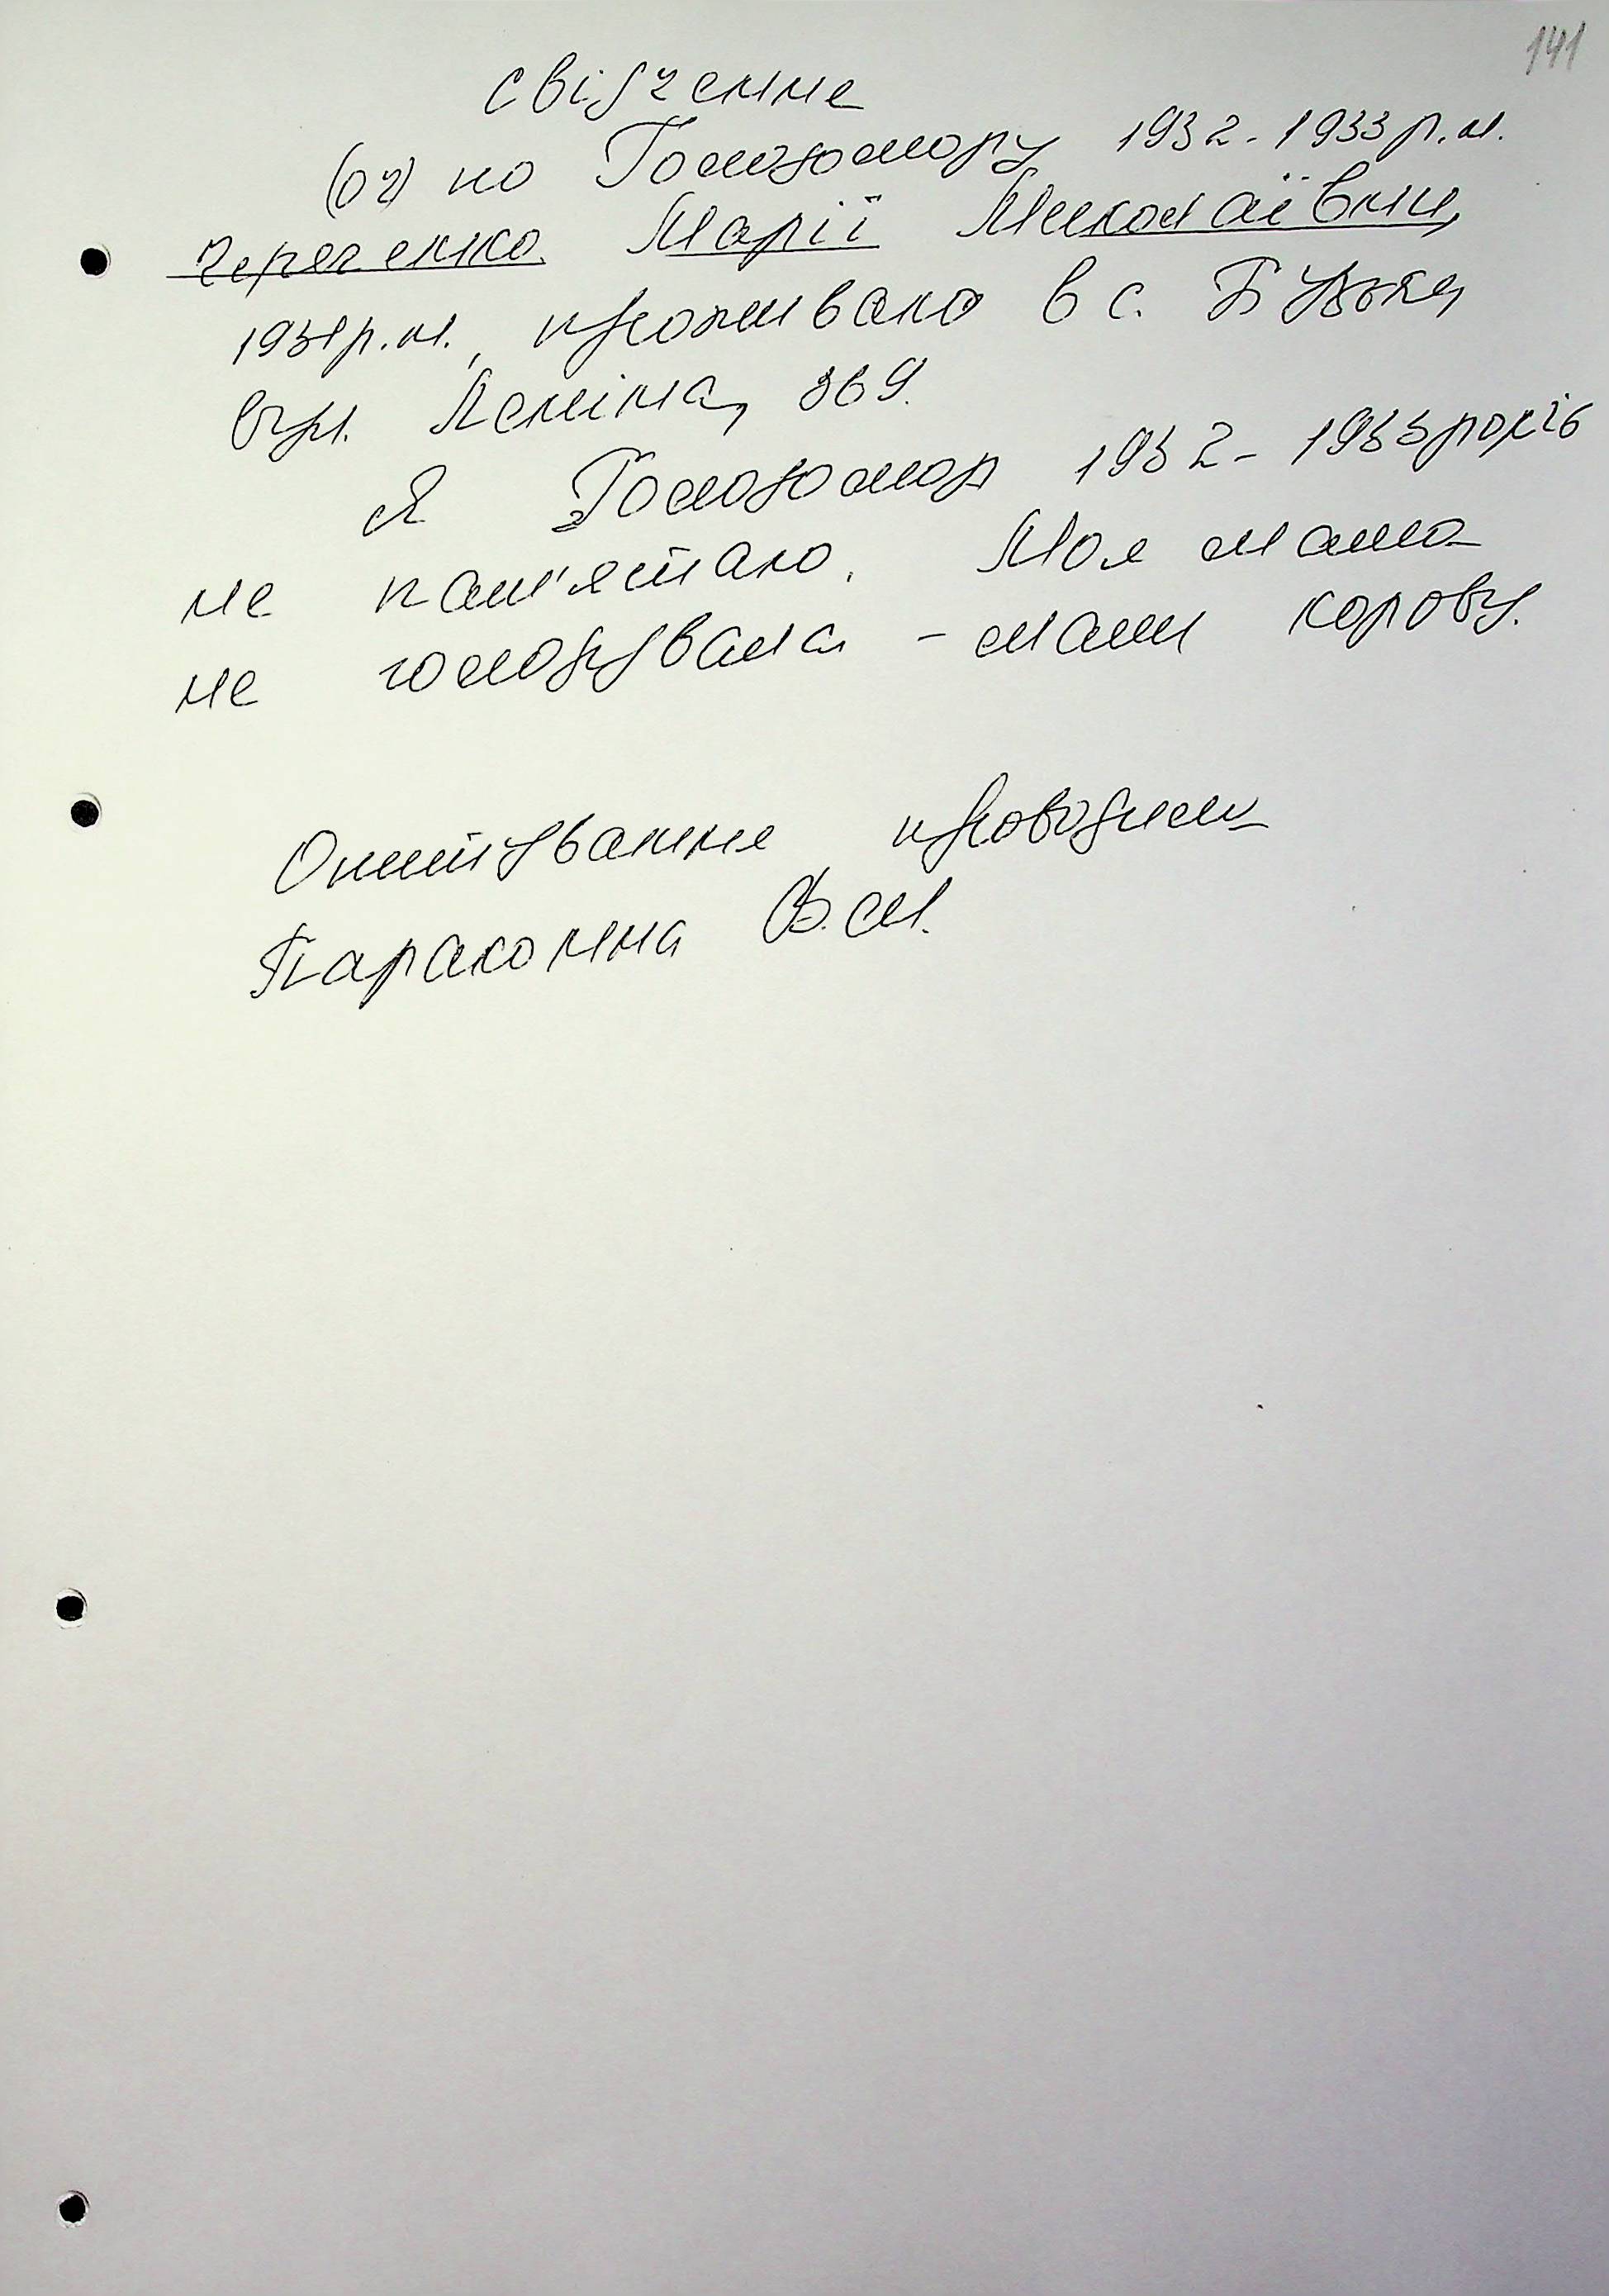 141
свідчення
(оч) по Голодомору 1932-1933 р.н.
Марії Миколаївни,
1931р.н., проживаю в с. Бузьки
вул. Леніна, 369.
Я Голодомор 1932-1933років
не пам'ятаю. Моя мама
не голодувала - мали корову.
Опитування проводила
Параконна В.М.